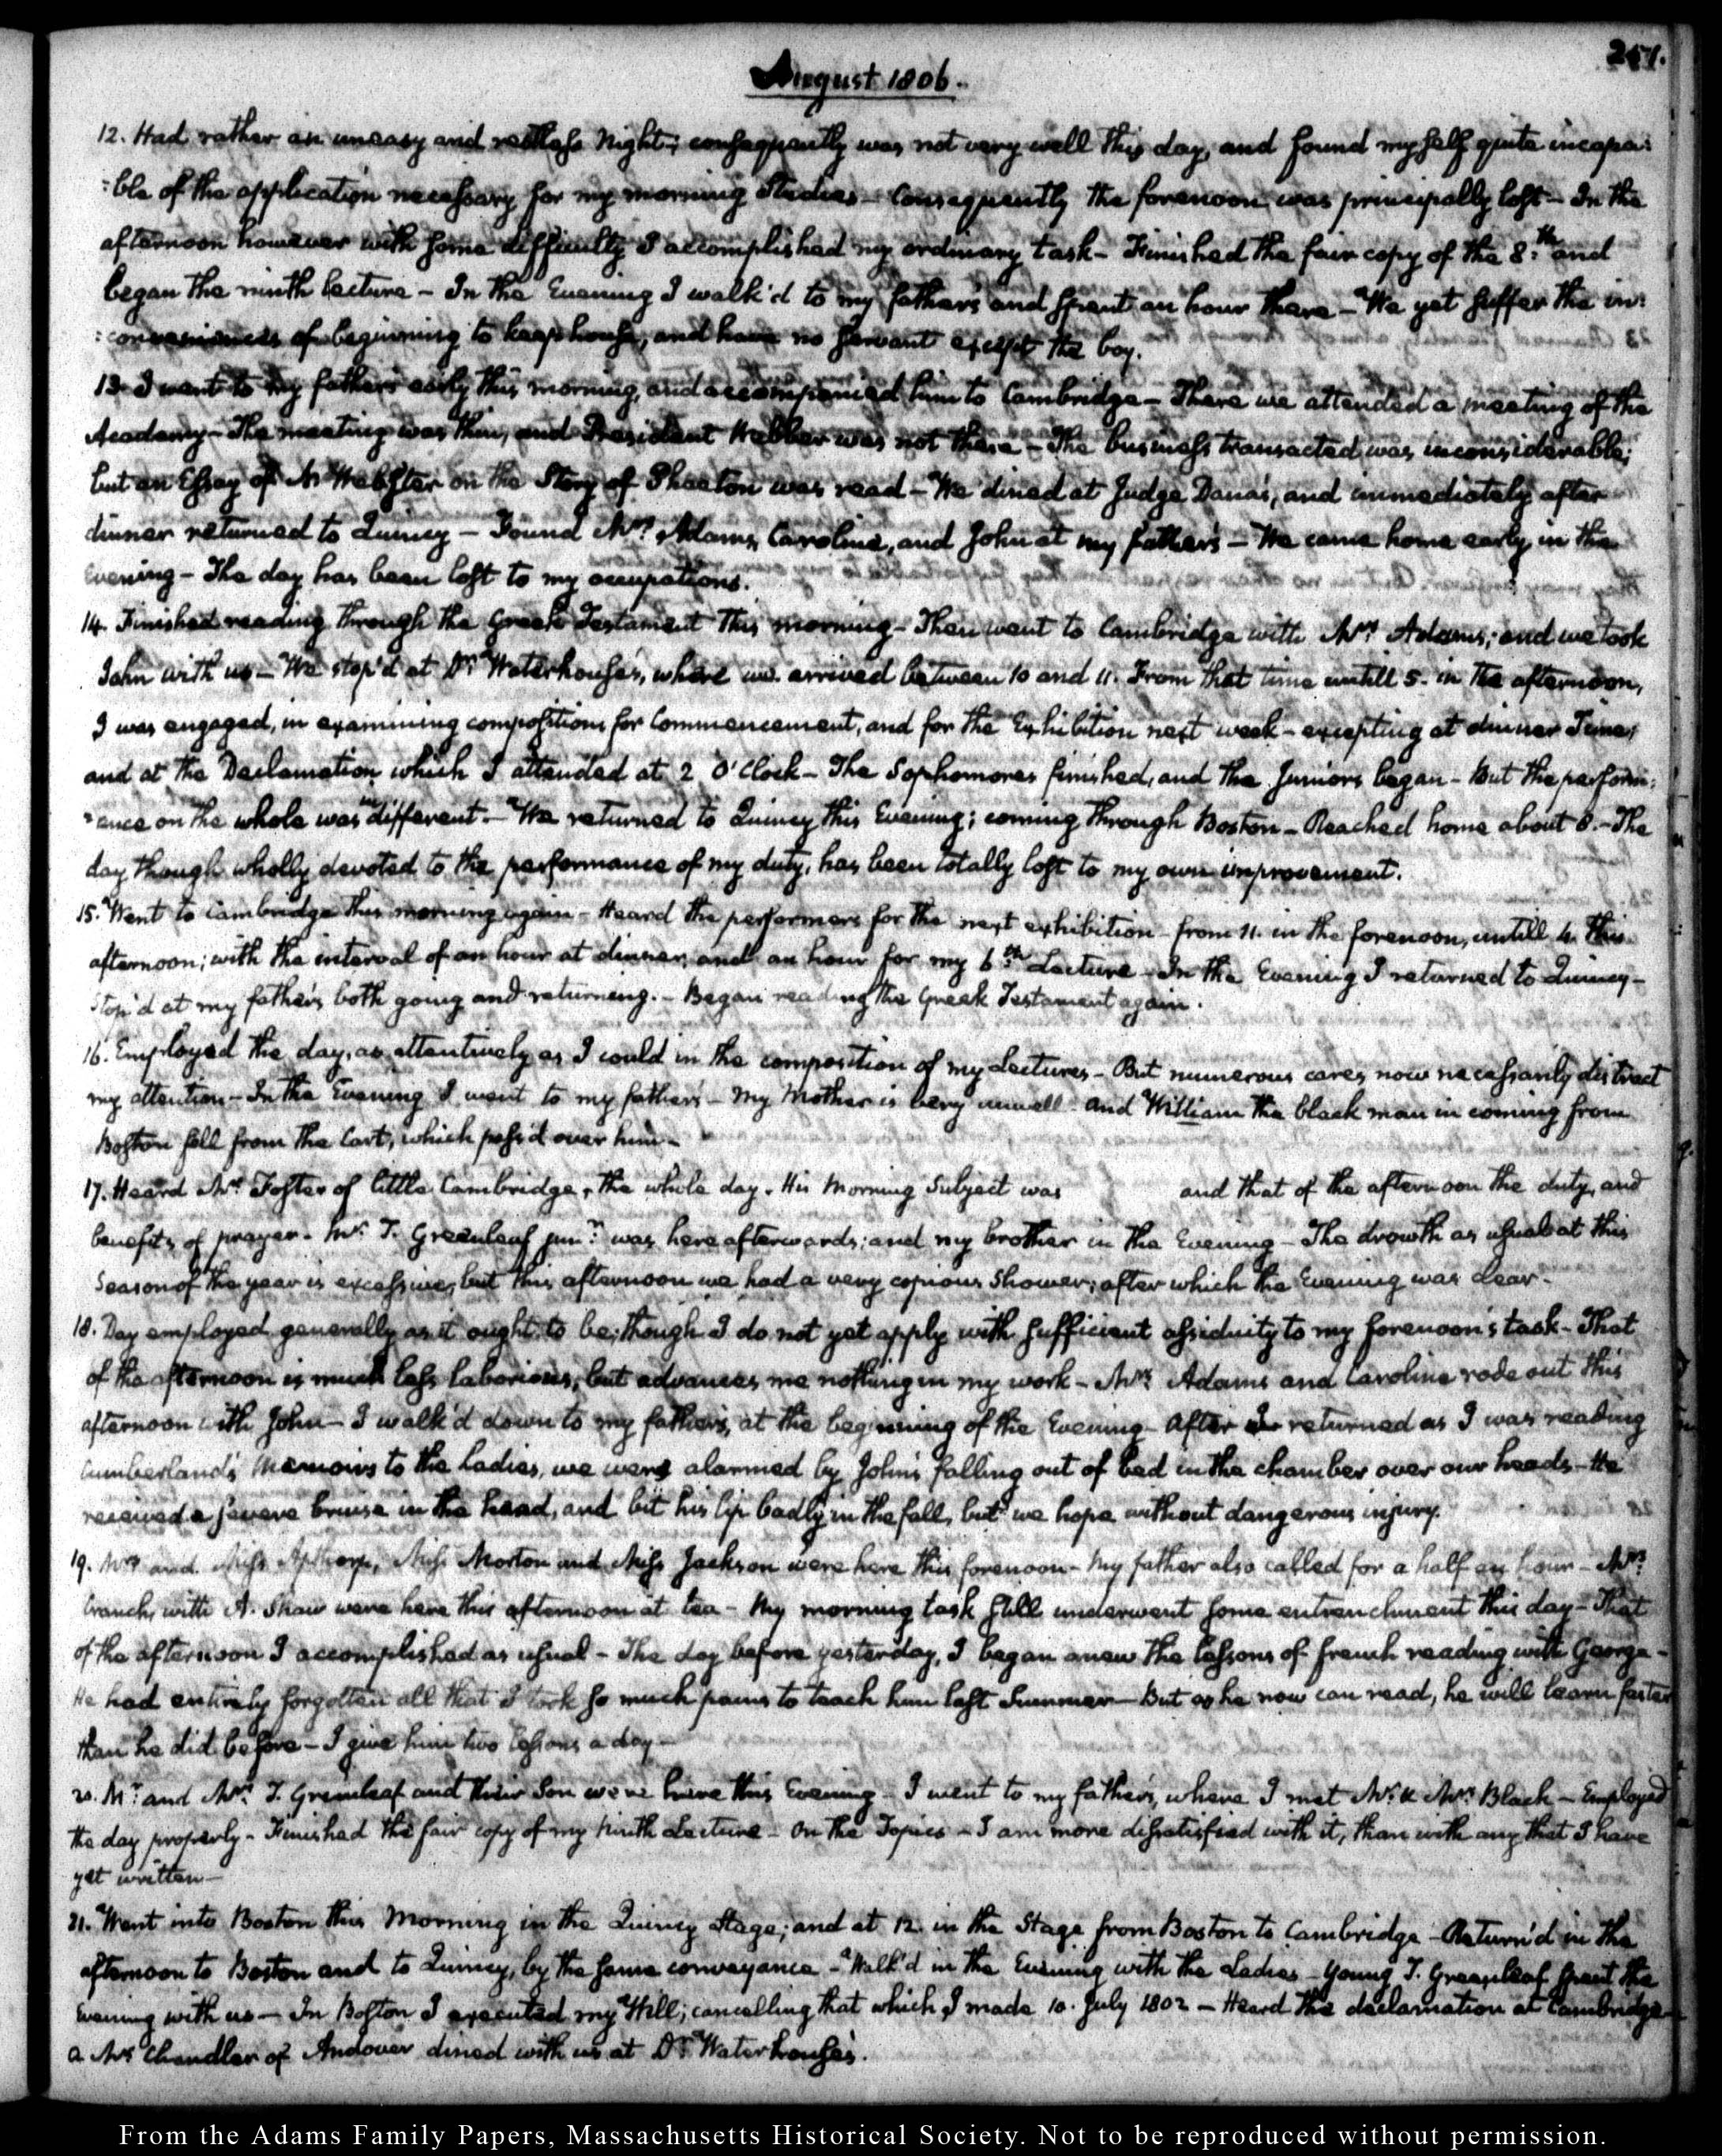 257.
August 1806.
12. Had rather an uneasy and restless Night; consequently was not very well this day, and found myself quite incapa:
:ble of the application necessary for my morning Studies — Consequently the forenoon was principally lost — In the
afternoon however with some difficulty I accomplished my ordinary task — Finished the fair copy of the 8.th and
began the ninth lecture — In the Evening I walk'd to my father's and spent an hour there — We yet suffer the in:
:conveniences of beginning to keep house, and have no servant except the boy.
13. I went to my father's early this morning, and accompanied him to Cambridge — There we attended a meeting of the
Academy — The meeting was thin, and President Webber was not there — The business transacted was inconsiderable;
but an Essay of Mr Webster on the Story of Phaeton was read — We dined at Judge Dana's, and immediately after
dinner returned to Quincy — Found Mrs. Adams, Caroline, and John at my father's — We came home early in the
Evening — The day has been lost to my occupations.
14. Finished reading through the Greek Testament this morning — Then went to Cambridge with Mrs. Adams; and we took
John with us — We stop'd at Dr. Waterhouse's, where we arrived between 10 and 11. From that time untill 5. in the afternoon,
I was engaged, in examining compositions for Commencement, and for the Exhibition next week — excepting at dinner Time,
and at the Declamation which I attended at 2 O'Clock — The Sophomores finished, and the Juniors began — But the perform:
:ance on the whole was indifferent. — We returned to Quincy this Evening; coming through Boston — Reached home about 8. — The
day though wholly devoted to the performance of my duty, has been totally lost to my own improvement.
15. Went to Cambridge this morning again — Heard the performers for the next exhibition from 11. in the forenoon, untill 4. this
afternoon; with the interval of an hour at dinner, and an hour for my 6.th Lecture — In the Evening I returned to Quincy —
Stop'd at my father's both going and returning. — Began reading the Greek Testament again.
16. Employed the day, as attentively as I could in the composition of my Lectures — But numerous cares now necessarily distract
my attention — In the Evening I went to my father's — My Mother is very unwell — and William the black man in coming from
Boston fell from the Cart, which pass'd over him —
17. Heard Mr. Foster of little Cambridge, the whole day. His Morning Subject was and that of the afternoon the duty, and
benefits of prayer. Mr. T. Greenleaf junr. was here afterwards; and my brother in the Evening — The drowth as usual at this
Season of the year is excessive, but this afternoon we had a very copious Shower; after which the Evening was clear.
18. Day employed generally as it ought to be; though I do not yet apply with sufficient assiduity to my forenoon's task — That
of the afternoon is much less laborious; but advances me nothing in my work — Mrs. Adams and Caroline rode out this
afternoon with John — I walk'd down to my father's, at the beginning of the Evening — After I returned as I was reading
Cumberland's Memoirs to the Ladies, we were alarmed by John's falling out of bed in the chamber over our heads — He
received a severe bruise in the head, and bit his lip badly in the fall, but we hope without dangerous injury.
19. Mrs and Miss Apthorp, Miss Morton and Miss Jackson were here this forenoon — My father also called for a half an hour — Mrs.
Cranch, with A. Shaw were here this afternoon at tea — My morning task still underwent some entrenchment this day — That
of the afternoon I accomplished as usual — The day before yesterday, I began anew the lessons of french reading with George —
He had entirely forgotten all that I took so much pains to teach him last Summer — But as he now can read, he will learn faster
than he did before — I give him two lessons a day —
20. Mr. and Mrs. T. Greenleaf and their Son were here this Evening — I went to my father's, where I met Mr. & Mrs. Black — Employed
the day properly — Finished the fair copy of my Ninth Lecture — On the Topics — I am more dissatisfied with it, than with any that I have
yet written —
21. Went into Boston this Morning in the Quincy Stage; and at 12. in the Stage from Boston to Cambridge — Return'd in the
afternoon to Boston and to Quincy, by the same conveyance — Walk'd in the Evening with the Ladies — Young T. Greenleaf spent the
Evening with us — In Boston I executed my Will; cancelling that which I made 10. July 1802 — Heard the declamation at Cambridge —
a Mr Chandler of Andover dined with us at Dr. Waterhouse's.
From the Adams Family Papers, Massachusetts Historical Society. Not to be reproduced without permission.